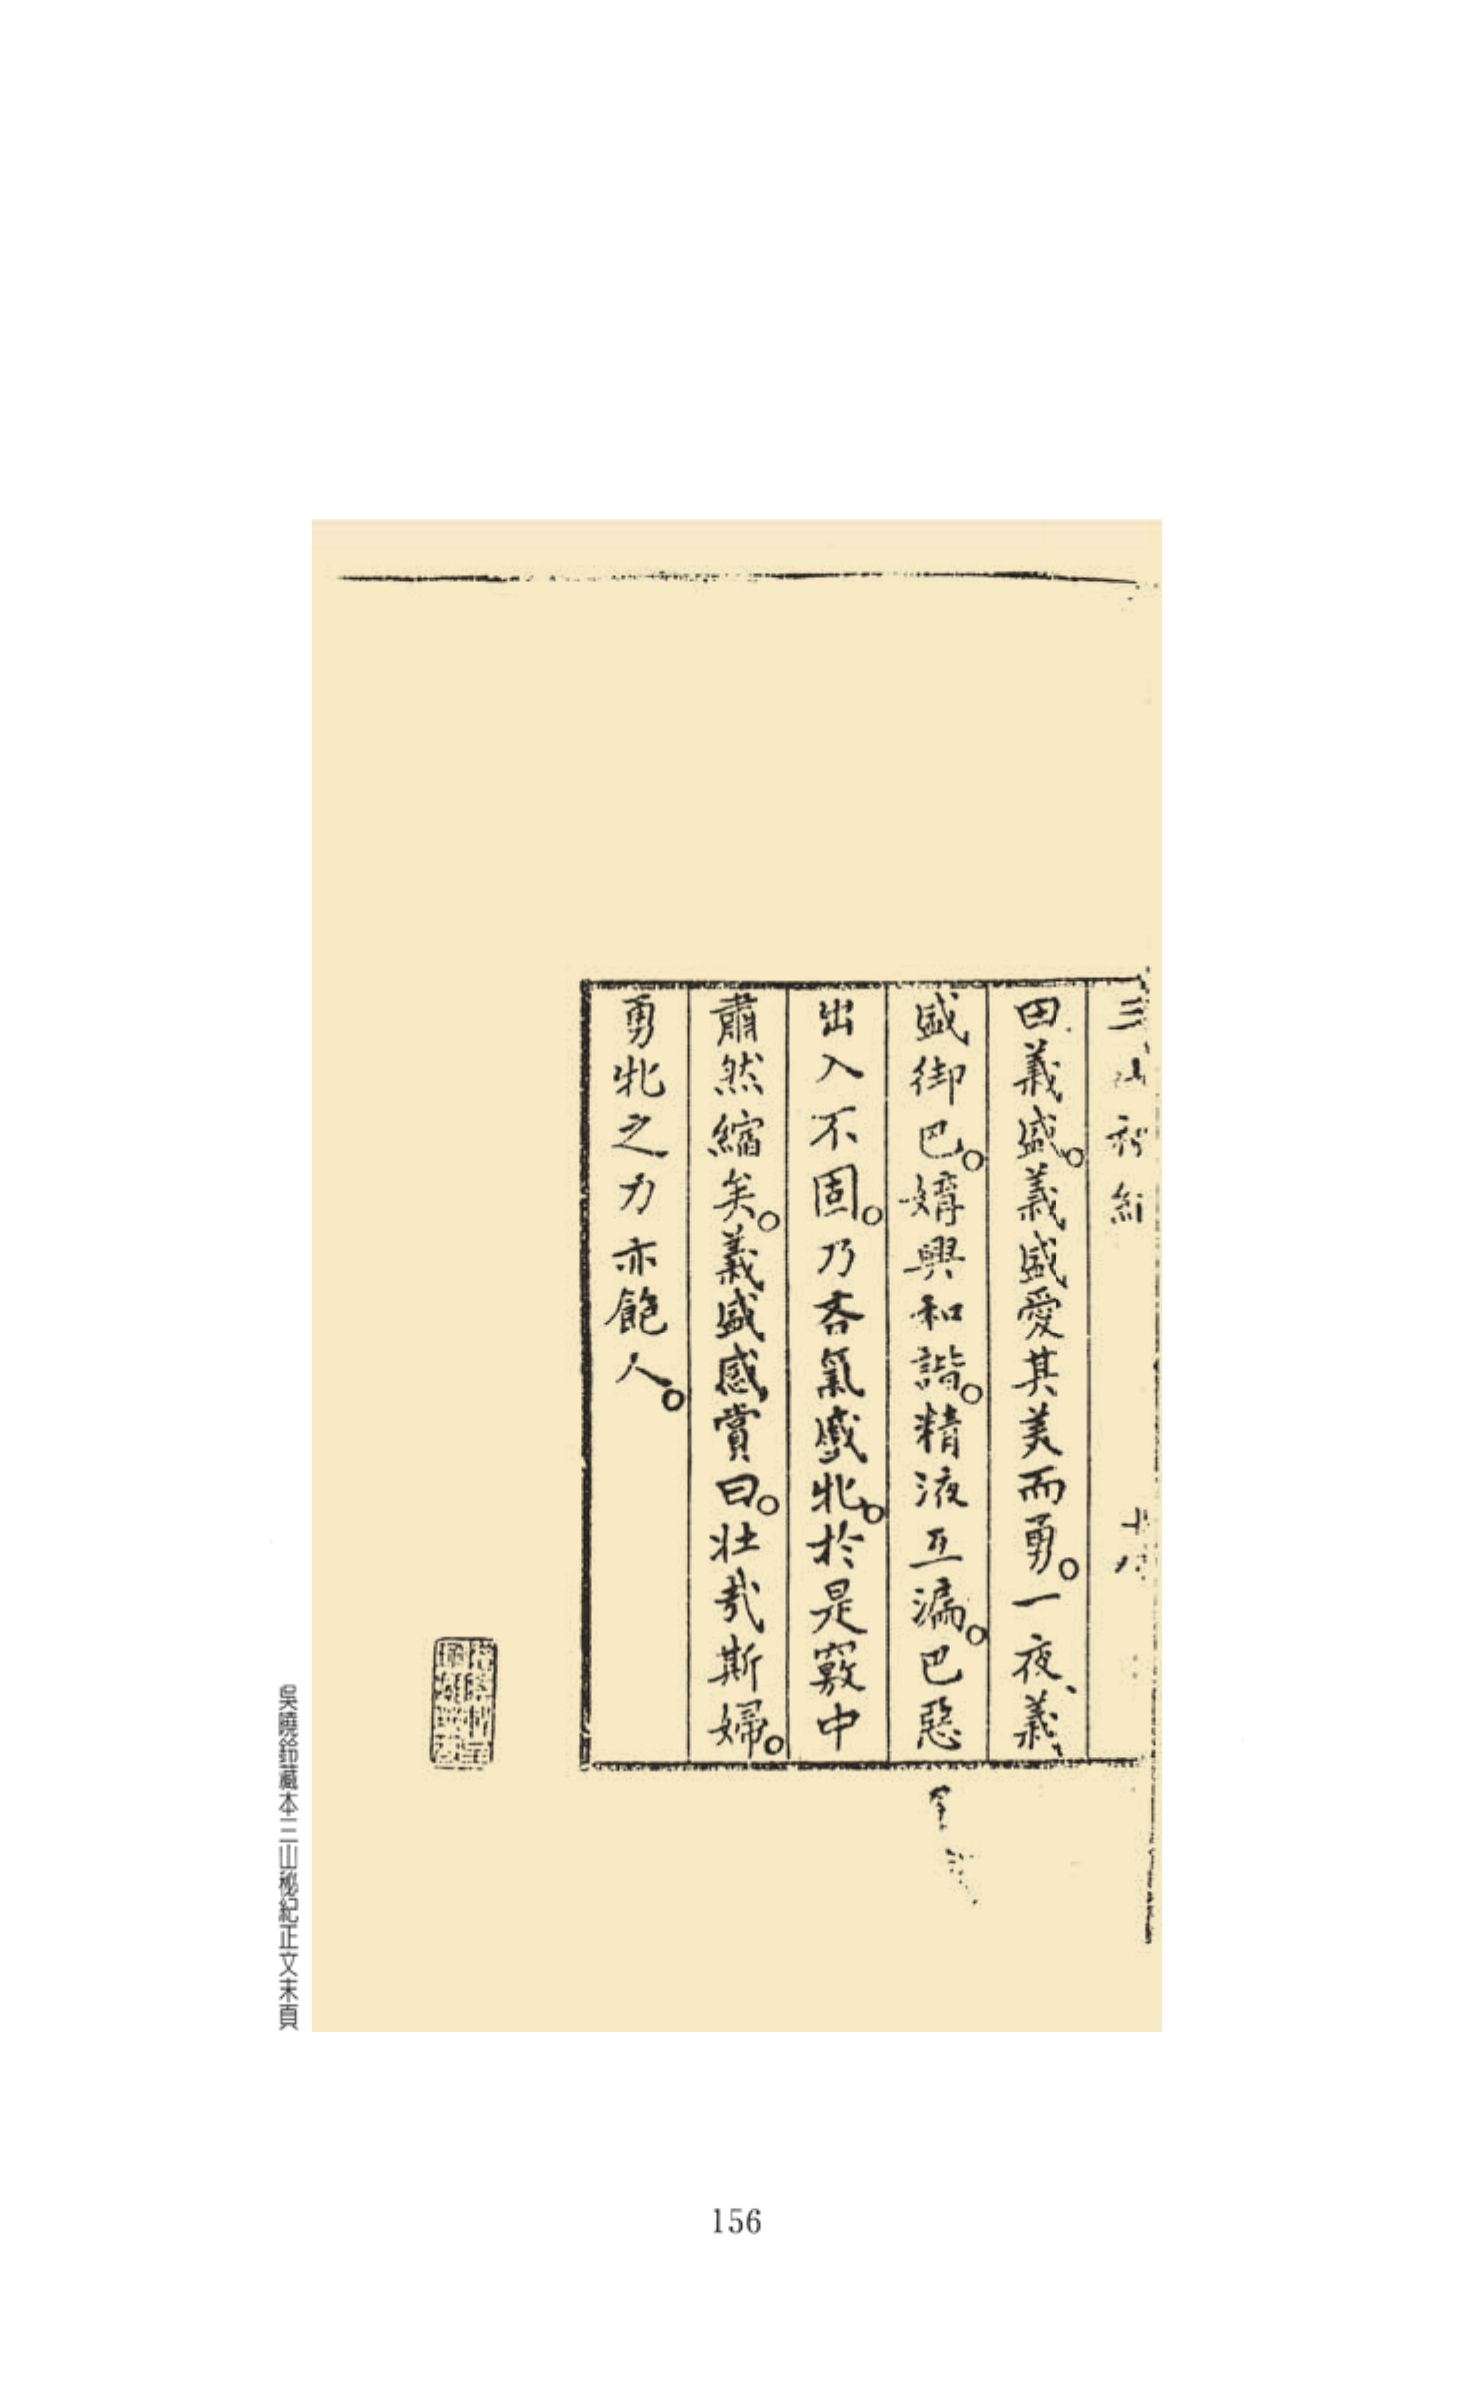 三山秘紀
田義盛。義盛愛其美而勇。一夜、義
盛御巴。媾興和諧。精液互漏。巴惡
出入不固。乃吞氣蹙牝。於是竅中
肅然縮矣。義盛感賞曰。壯哉斯婦。
勇牝之力亦飽人。
吳曉鈴藏本三山秘紀正文末頁
156